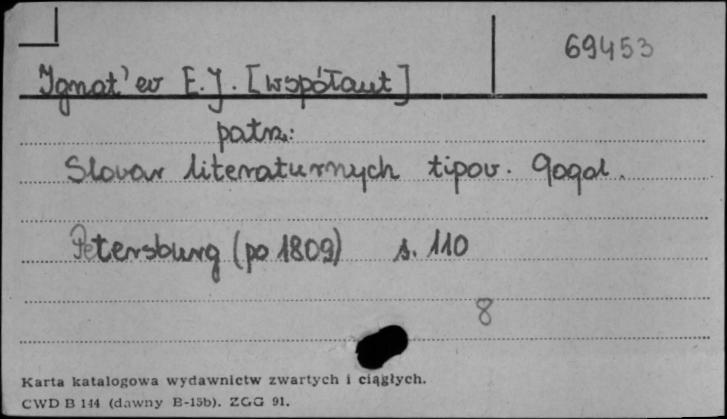 69453
Ignat'ev E. J. [współaut]
patrz:
Slovar literaturnych tipov. Gogol.
Petersburg (po 1809) s. 110
8
Karta katalogowa wydawnictw zwartych i ciągłych.
CWD B 144 (dawny B-15b). ZGG 91.